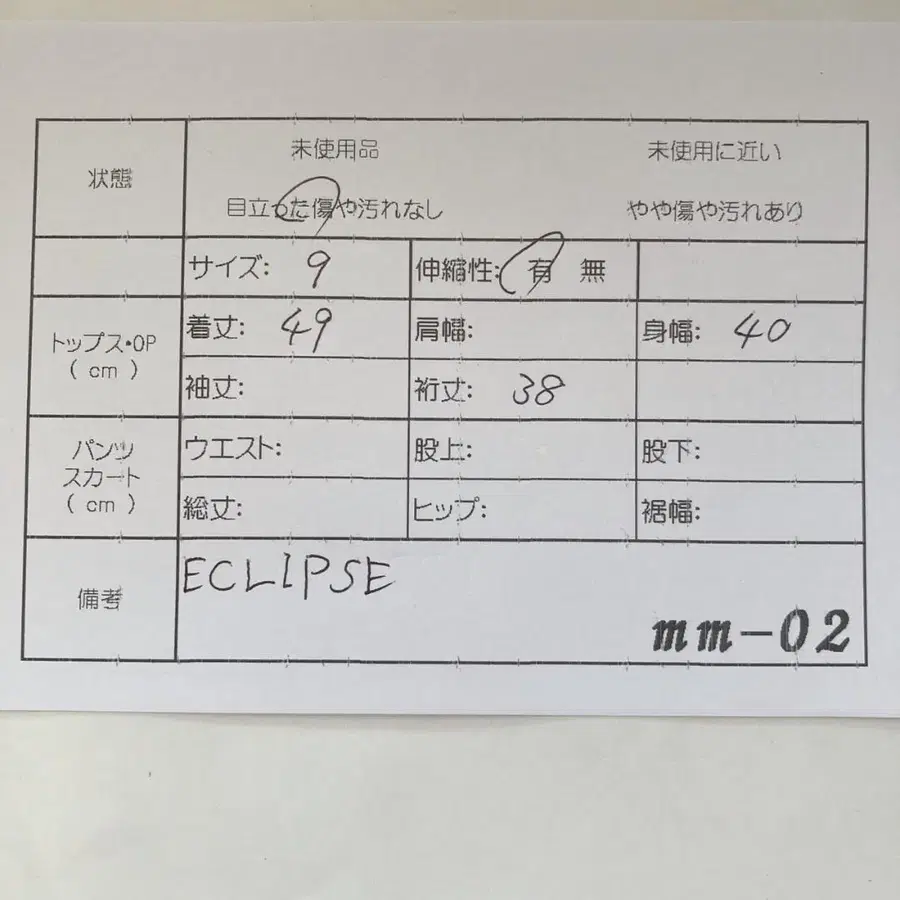 状態
未使用品 未使用に近い
目立った傷や汚れなし やや傷や汚れあり
サイズ: 9 伸縮性: 有 無
トップス・OP
( cm )
着丈: 49 肩幅: 身幅: 40
袖丈: 裄丈: 38
パンツ
スカート
( cm )
ウエスト: 股上: 股下:
総丈: ヒップ: 裾幅:
備考
ECLIPSE
mm-02